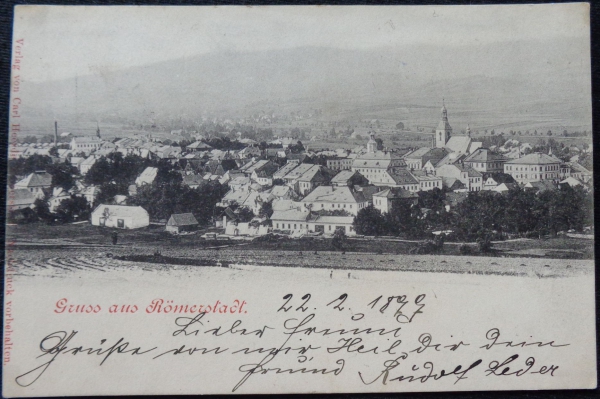 Verlag von Carl
vorbehalten.
Gruss aus Römerstadt.
22. 2. 1899
Lieber Freund
Grüße von mir Heil Dir dein
freund Rudolf Leder